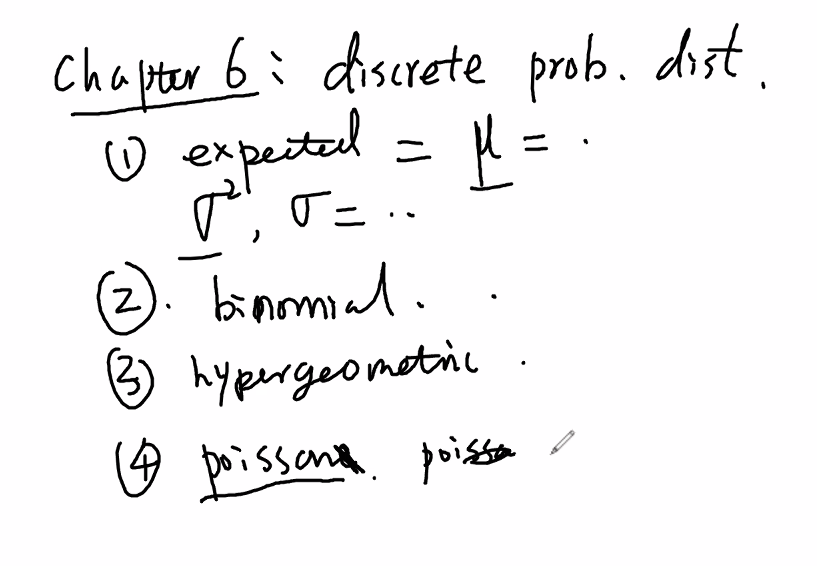 Chapter 6: discrete prob. dist.
① expected = μ = .
σ², σ = ..
②. binomial. .
③ hypergeometric .
④ poisson. poisso